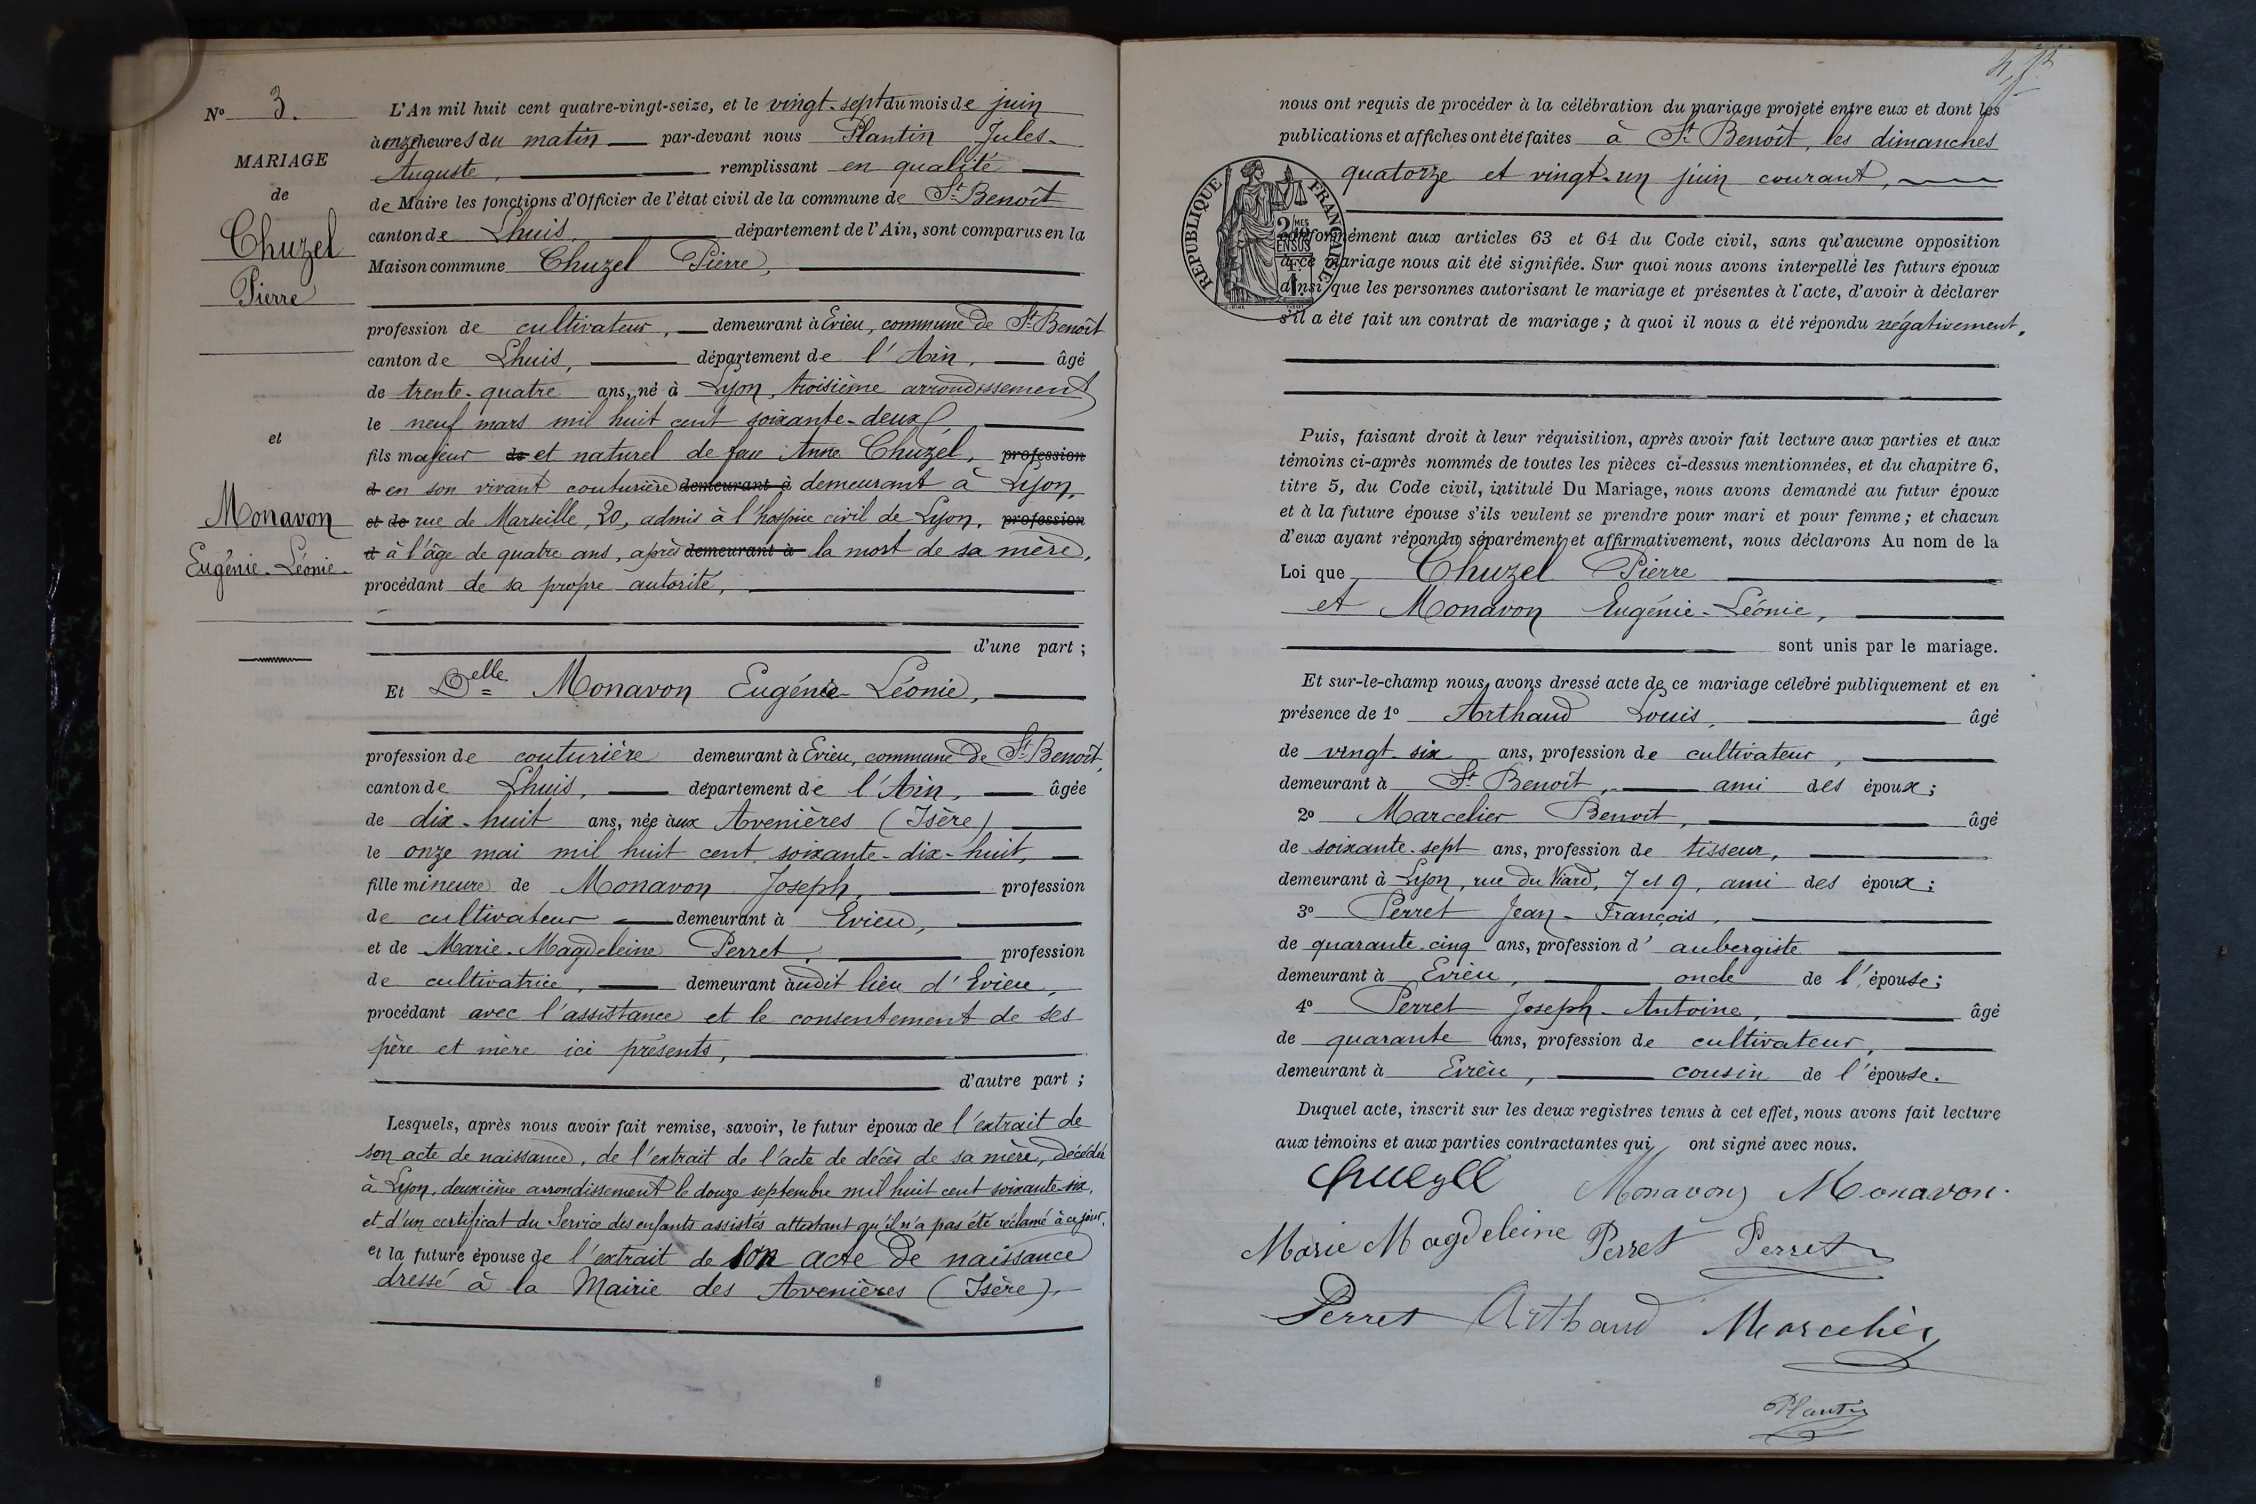 N° 3.
MARIAGE
de
Chuzel
Pierre
et
Monavon
Eugénie-Léonie-
L'An mil huit cent quatre-vingt-seize, et le vingt-sept du mois de juin
à onze heures du matin par-devant nous Plantin Jules-
Auguste, remplissant en qualité
de Maire les fonctions d'Officier de l'état civil de la commune de St Benoît
canton de Lhuis département de l'Ain, sont comparus en la
Maison commune Chuzel Pierre,
profession de cultivateur, demeurant à Evieu, commune de St Benoît
canton de Lhuis, département de l'Ain, âgé
de trente-quatre ans, né à Lyon, troisième arrondissement
le neuf mars mil huit cent soixante-deux,
fils majeur de et naturel de feue Anne Chuzel, profession
d en son vivant couturière demeurant à demeurant à Lyon,
et de rue de Marseille, 20, admis à l'hospice civil de Lyon, profession
d à l'âge de quatre ans, après demeurant à la mort de sa mère,
procédant de sa propre autorité,
d'une part ;
Et Delle Monavon Eugénie-Léonie,
profession de couturière demeurant à Evieu, commune de St Benoît,
canton de Lhuis, département de l'Ain, âgée
de dix-huit ans, née aux Avenières (Isère)
le onze mai mil huit cent soixante-dix-huit,
fille mineure de Monavon Joseph, profession
de cultivateur demeurant à Evieu,
et de Marie-Magdeleine Perret, profession
de cultivatrice, demeurant audit lieu d'Evieu,
procédant avec l'assistance et le consentement de ses
père et mère ici présents,
d'autre part ;
Lesquels, après nous avoir fait remise, savoir, le futur époux de l'extrait de
son acte de naissance, de l'extrait de l'acte de décès de sa mère, décédée
à Lyon, deuxième arrondissement le douze septembre mil huit cent soixante-six,
et d'un certificat du Service des enfants assistés attestant qu'il n'a pas été réclamé à ce jour,
et la future épouse de l'extrait de son acte de naissance
dressé à la Mairie des Avenières (Isère).
nous ont requis de procéder à la célébration du mariage projeté entre eux et dont les
publications et affiches ont été faites à St Benoît, les dimanches
quatorze et vingt-un juin courant,
REPUBLIQUE FRANÇAISE
conformément aux articles 63 et 64 du Code civil, sans qu'aucune opposition
à ce mariage nous ait été signifiée. Sur quoi nous avons interpellé les futurs époux
ainsi que les personnes autorisant le mariage et présentes à l'acte, d'avoir à déclarer
s'il a été fait un contrat de mariage ; à quoi il nous a été répondu négativement.
Puis, faisant droit à leur réquisition, après avoir fait lecture aux parties et aux
témoins ci-après nommés de toutes les pièces ci-dessus mentionnées, et du chapitre 6,
titre 5, du Code civil, intitulé Du Mariage, nous avons demandé au futur époux
et à la future épouse s'ils veulent se prendre pour mari et pour femme ; et chacun
d'eux ayant répondu séparément et affirmativement, nous déclarons Au nom de la
Loi que Chuzel Pierre
et Monavon Eugénie-Léonie,
sont unis par le mariage.
Et sur-le-champ nous avons dressé acte de ce mariage célébré publiquement et en
présence de 1° Arthaud Louis, âgé
de vingt-six ans, profession de cultivateur,
demeurant à St Benoît, ami des époux ;
2° Marcelier Benoît, âgé
de soixante-sept ans, profession de tisseur,
demeurant à Lyon, rue du Viard, 7 et 9, ami des époux ;
3° Perret Jean-François,
de quarante-cinq ans, profession d'aubergiste
demeurant à Evieu, oncle de l'épouse ;
4° Perret Joseph-Antoine, âgé
de quarante ans, profession de cultivateur,
demeurant à Evieu, cousin de l'épouse.
Duquel acte, inscrit sur les deux registres tenus à cet effet, nous avons fait lecture
aux témoins et aux parties contractantes qui ont signé avec nous.
Monavon Monavon.
Marie Magdeleine Perret Perret
Perret Arthaud Marcelier
Plantin